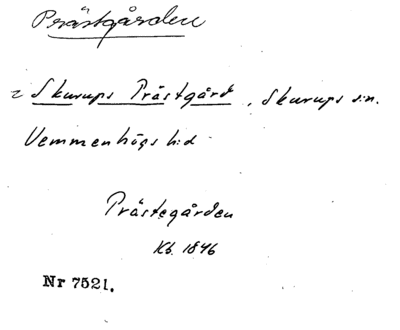 Prästgården
= Skurups Prästgård, Skurups s:n.
Vemmenhögs h:d
Prästegården
Kb. 1846
Nr 7521.